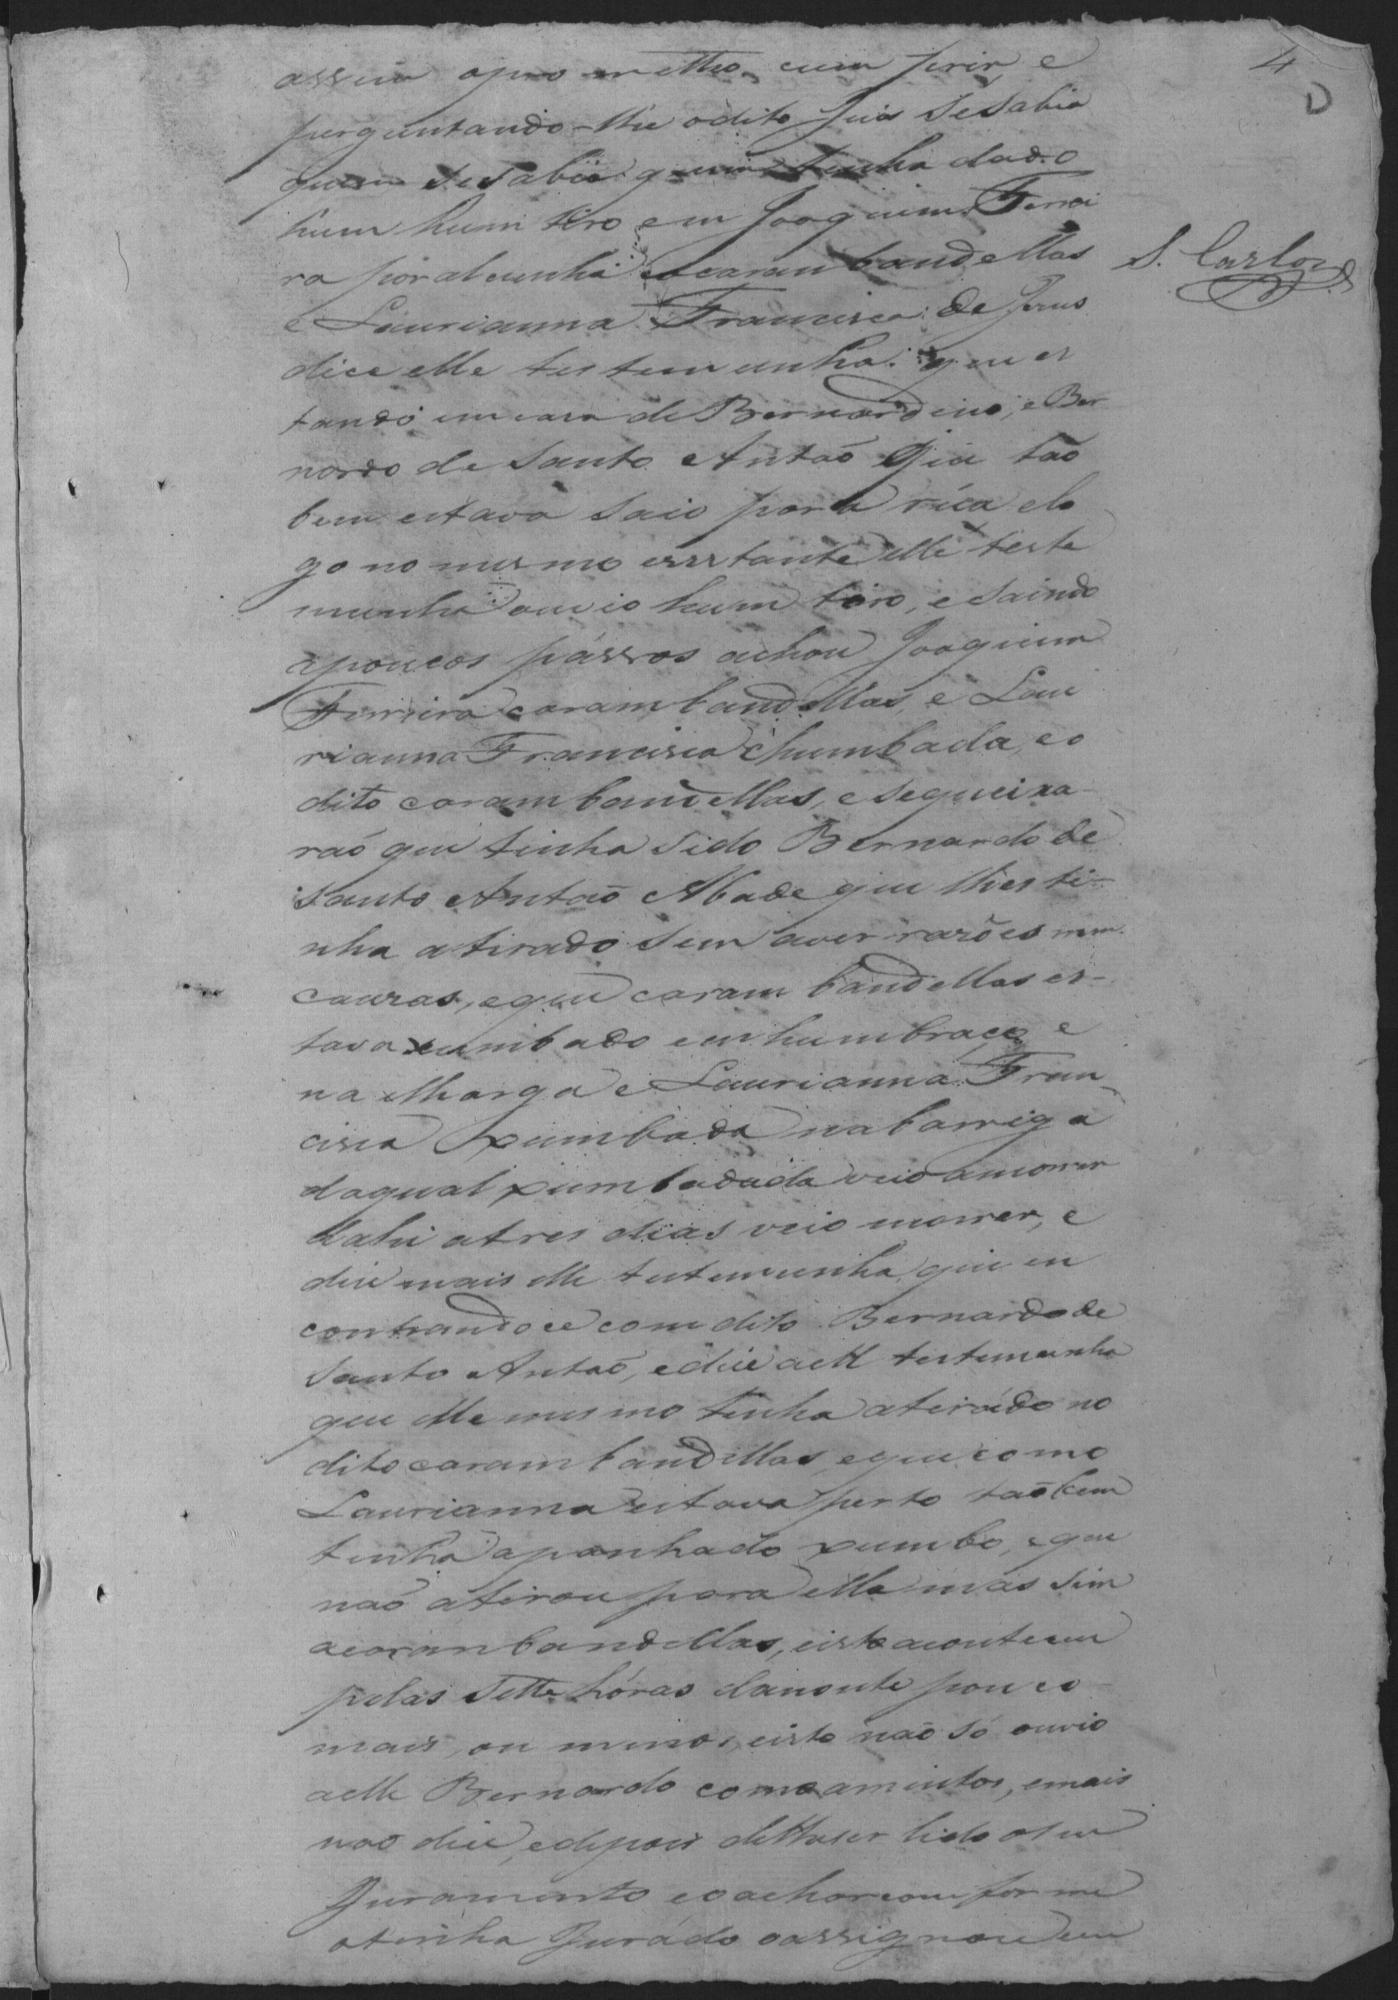 4
D
assim o pro metteo cum prir e
perguntando-lhe odito Juis Sesabia
quem se sabia quem tinha dado
hum hum tiro em Joaquim Ferrei
ra por alcunha carambandellas
S. Carlos
e Laurianna Francisca de Jesus
dice elle testemunha que es
tando em casa de Bernardino, e Ber
nardo de Santo Antaõ que taõ
bem estava saio para rúa elo
go no mesmo esstante elle teste
munha ouvio hum tiro, e saindo
apoucos pássos achou Joaquim
Ferreira carambandellas, e Lau
rianna Francisca chumbada, eo
dito carambandellas, e sequeixa
raõ que tinha sido Bernardo de
Santo Antaõ Abade que lhes ti-
nha atirado sem aver razões nem
cauzas, eque carambandellas es-
tava xumbado em hum braço, e
na Ilharga e Laurianna Fran
cisca xumbada na barriga
daqual xumbadada veio amorrer
dahi atres dias veio morrer, e
dice mais elle testemunha que en
contrandoce com dito Bernardo de
Santo Antaõ, edice aelle testemunha
que elle mesmo tinha atirádo no
dito carambandellas, eque como
Laurianna estava perto taõbem
tinha apanhado xumbo, e que
naõ atirou para ella mas sim
acarambandellas, eisto aconteceu
pelas Sette hóras danoute pouco
mais, ou menos, eisto naõ só ouvio
aelle Bernardo com̃oamuitos, emais
naõ dice, edepois delhaser lido oseu
Juramento eoachar comforme
otinha Jurádo oassignou em